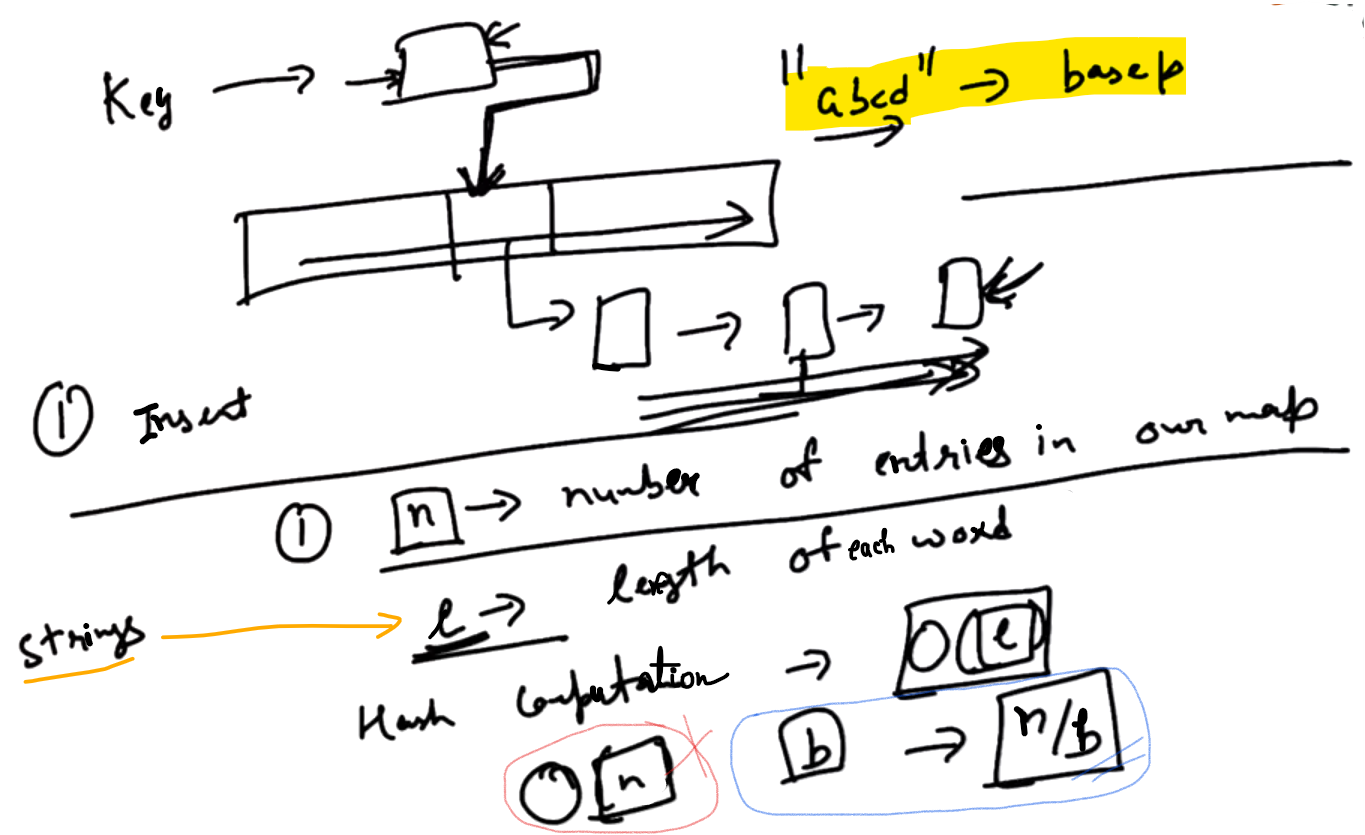 Key
"abcd" → base p
① Insert
① n → number of entries in our map
Strings → l → length of each word
Hash Computation → O(l)
O(n)
b → n/b